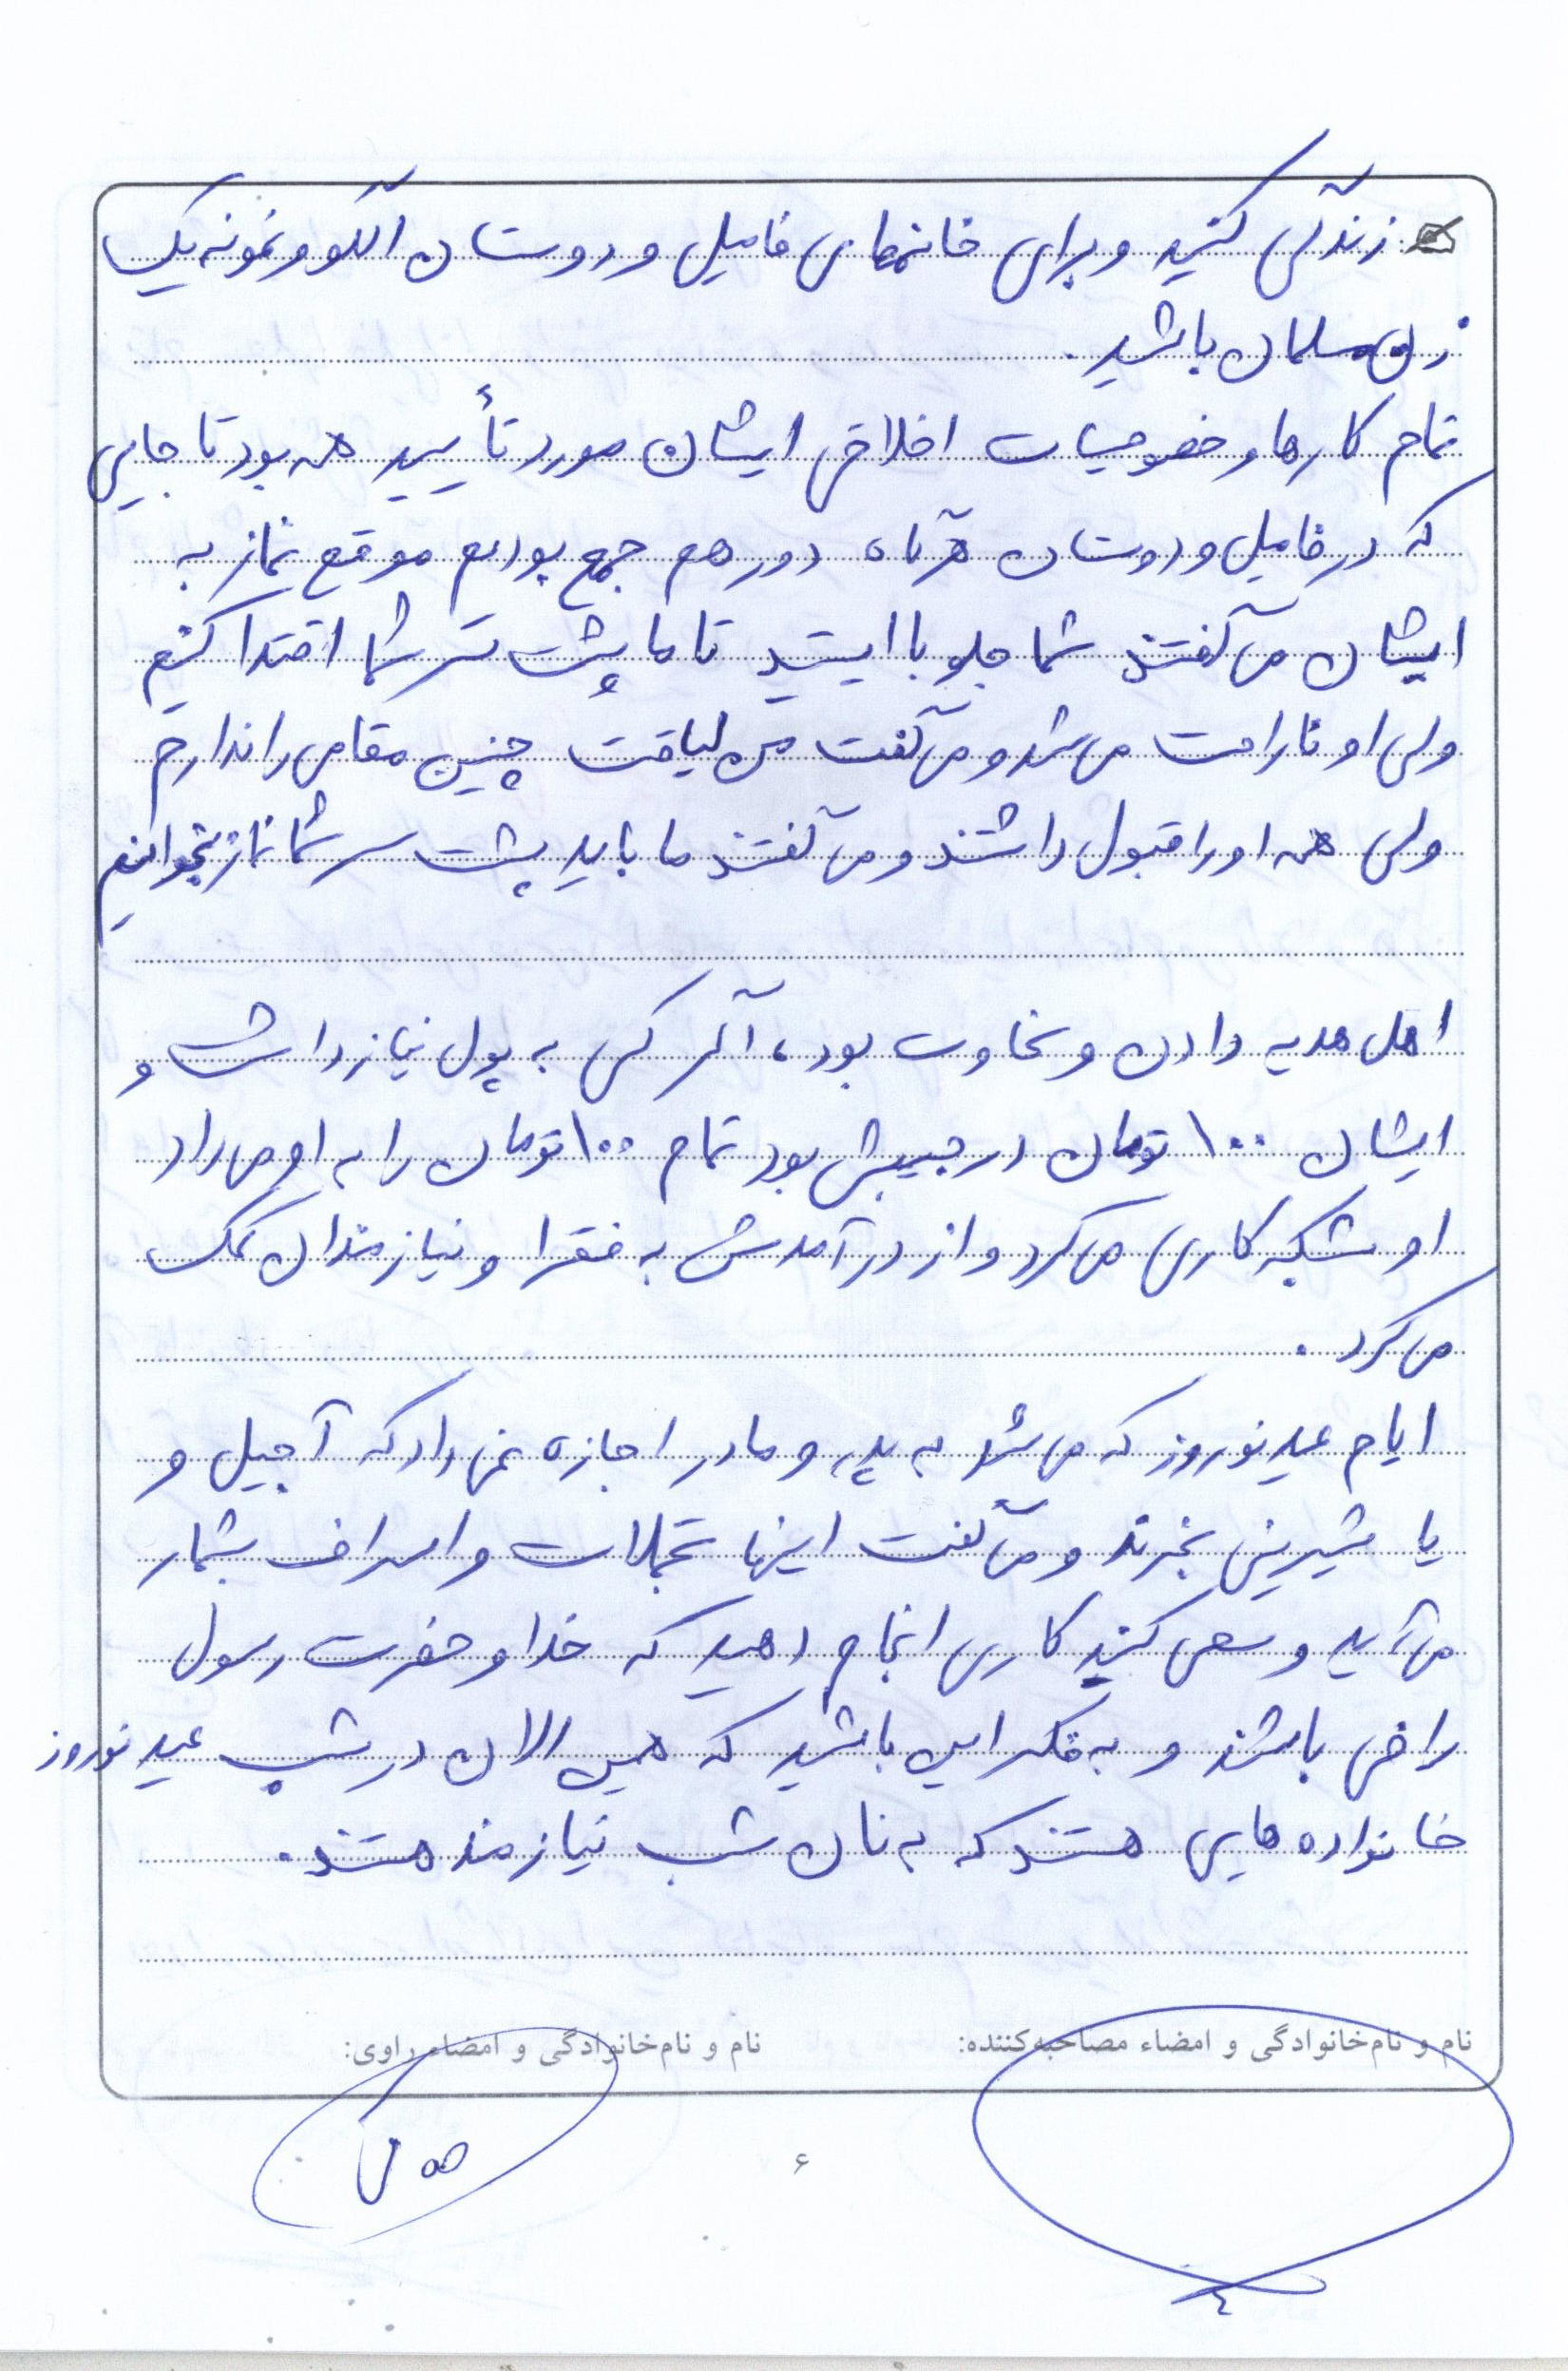 زندگی کنید و برای خانمهای فامیل و دوستان الگو و نمونه یک
زن مسلمان باشید.
تمام کارها و خصوصیات اخلاقی ایشان مورد تأیید همه بود تا جایی
که در فامیل و دوستان هرگاه دور هم جمع بودیم موقع نماز به
ایشان می‌گفتند شما جلو با ایستید تا ما پشت سر شما اقتدا کنیم
ولی او ناراحت می‌شد و می‌گفت من لیاقت چنین مقامی را ندارم
ولی همه او را قبول داشتند و می‌گفتند ما باید پشت سر شما نماز بخوانیم
اهل هدیه دادن و سخاوت بود، اگر کسی به پول نیاز داشت و
ایشان ۱۰۰ تومان در جیبش بود تمام ۱۰۰ تومان را به او می‌داد
او شبکه کاری می‌کرد و از درآمدش به فقرا و نیازمندان کمک
می‌کرد.
ایام عید نوروز که می‌شد به پدر و مادر اجازه نمی‌داد که آجیل و
یا شیرینی بخرند و می‌گفت اینها تجملات و اسراف بشمار
می‌آید و سعی کنید کاری انجام دهید که خدا و حضرت رسول
راضی باشند و به فکر این باشید که همین الان در شب عید نوروز
خانواده هایی هستند که به نان شب نیازمند هستند.
نام و نام‌خانوادگی و امضاء مصاحبه‌کننده:
نام و نام‌خانوادگی و امضاء راوی:
۶